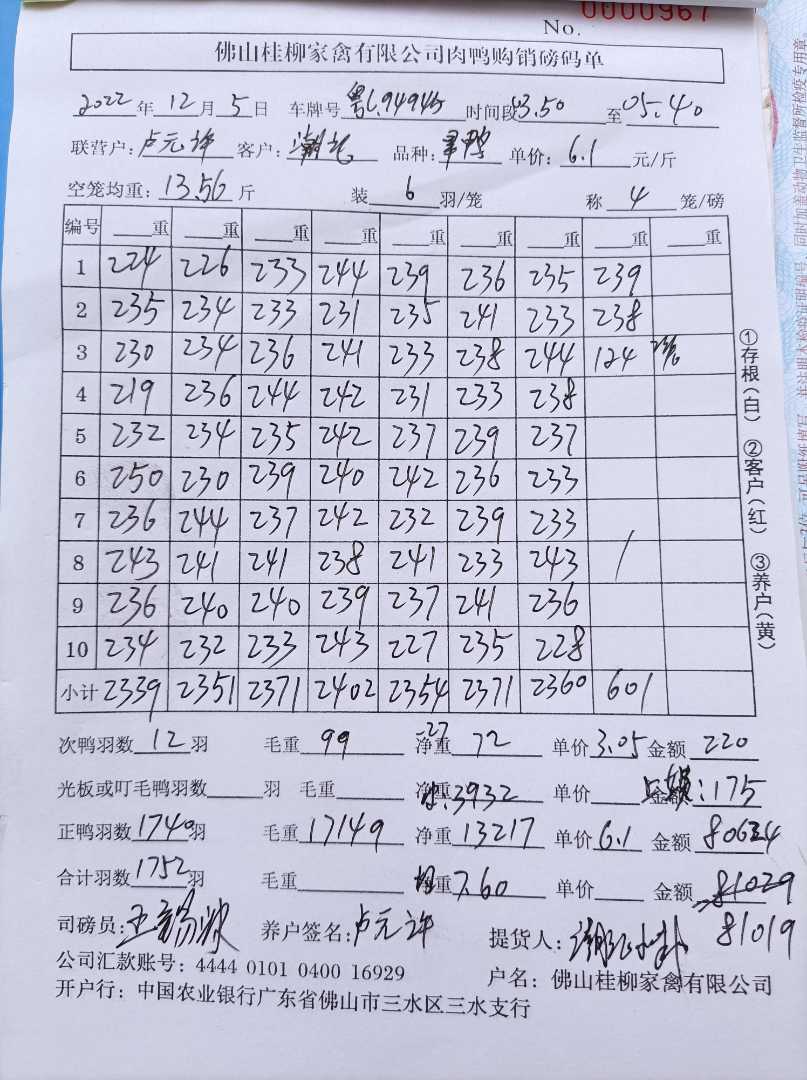 No. 0000967
佛山桂柳家禽有限公司肉鸭购销磅码单
2022年12月5日 车牌号 粤L94945 时间段03.50至05.40
联营户:卢元许 客户: 品种: 鸭 单价:6.1元/斤
空笼均重:13.56斤 装6羽/笼 称4笼/磅
编号 重 重 重 重 重 重 重 重 重
1 224 226 233 244 239 236 235 239
2 235 234 233 231 235 241 233 238
3 230 234 236 241 233 238 244 124
4 219 236 244 242 231 233 238
5 232 234 235 242 237 239 237
6 250 230 239 240 242 236 233
7 236 244 237 242 232 239 233
8 243 241 241 238 241 233 243 /
9 236 240 240 239 237 241 236
10 234 232 233 243 227 235 228
小计 2339 2351 2371 2402 2354 2371 2360 601
①存根(白) ②客户(红) ③养户(黄)
次鸭羽数12羽 毛重99 -27 净重72 单价3.05 金额220
光板或叮毛鸭羽数 羽 毛重 净重 3932 单价 金额:175
正鸭羽数1740羽 毛重17149 净重13217 单价6.1 金额80624
合计羽数1752羽 毛重 均重7.60 单价 金额81029
司磅员: 养户签名:卢元许 提货人: 81019
公司汇款账号:4444 0101 0400 16929 户名:佛山桂柳家禽有限公司
开户行:中国农业银行广东省佛山市三水区三水支行